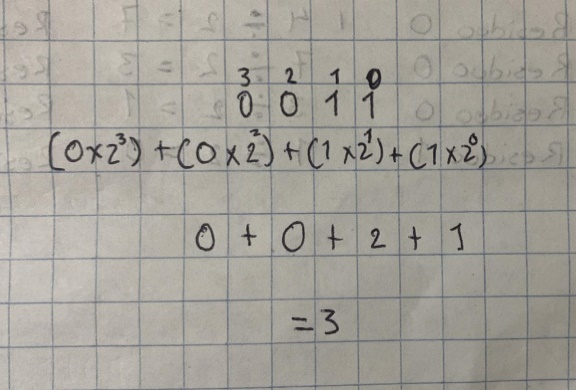 3 2 1 0
0 0 1 1
(0x2³) + (0x2²) + (1x2¹) + (1x2⁰)
0 + 0 + 2 + 1
= 3